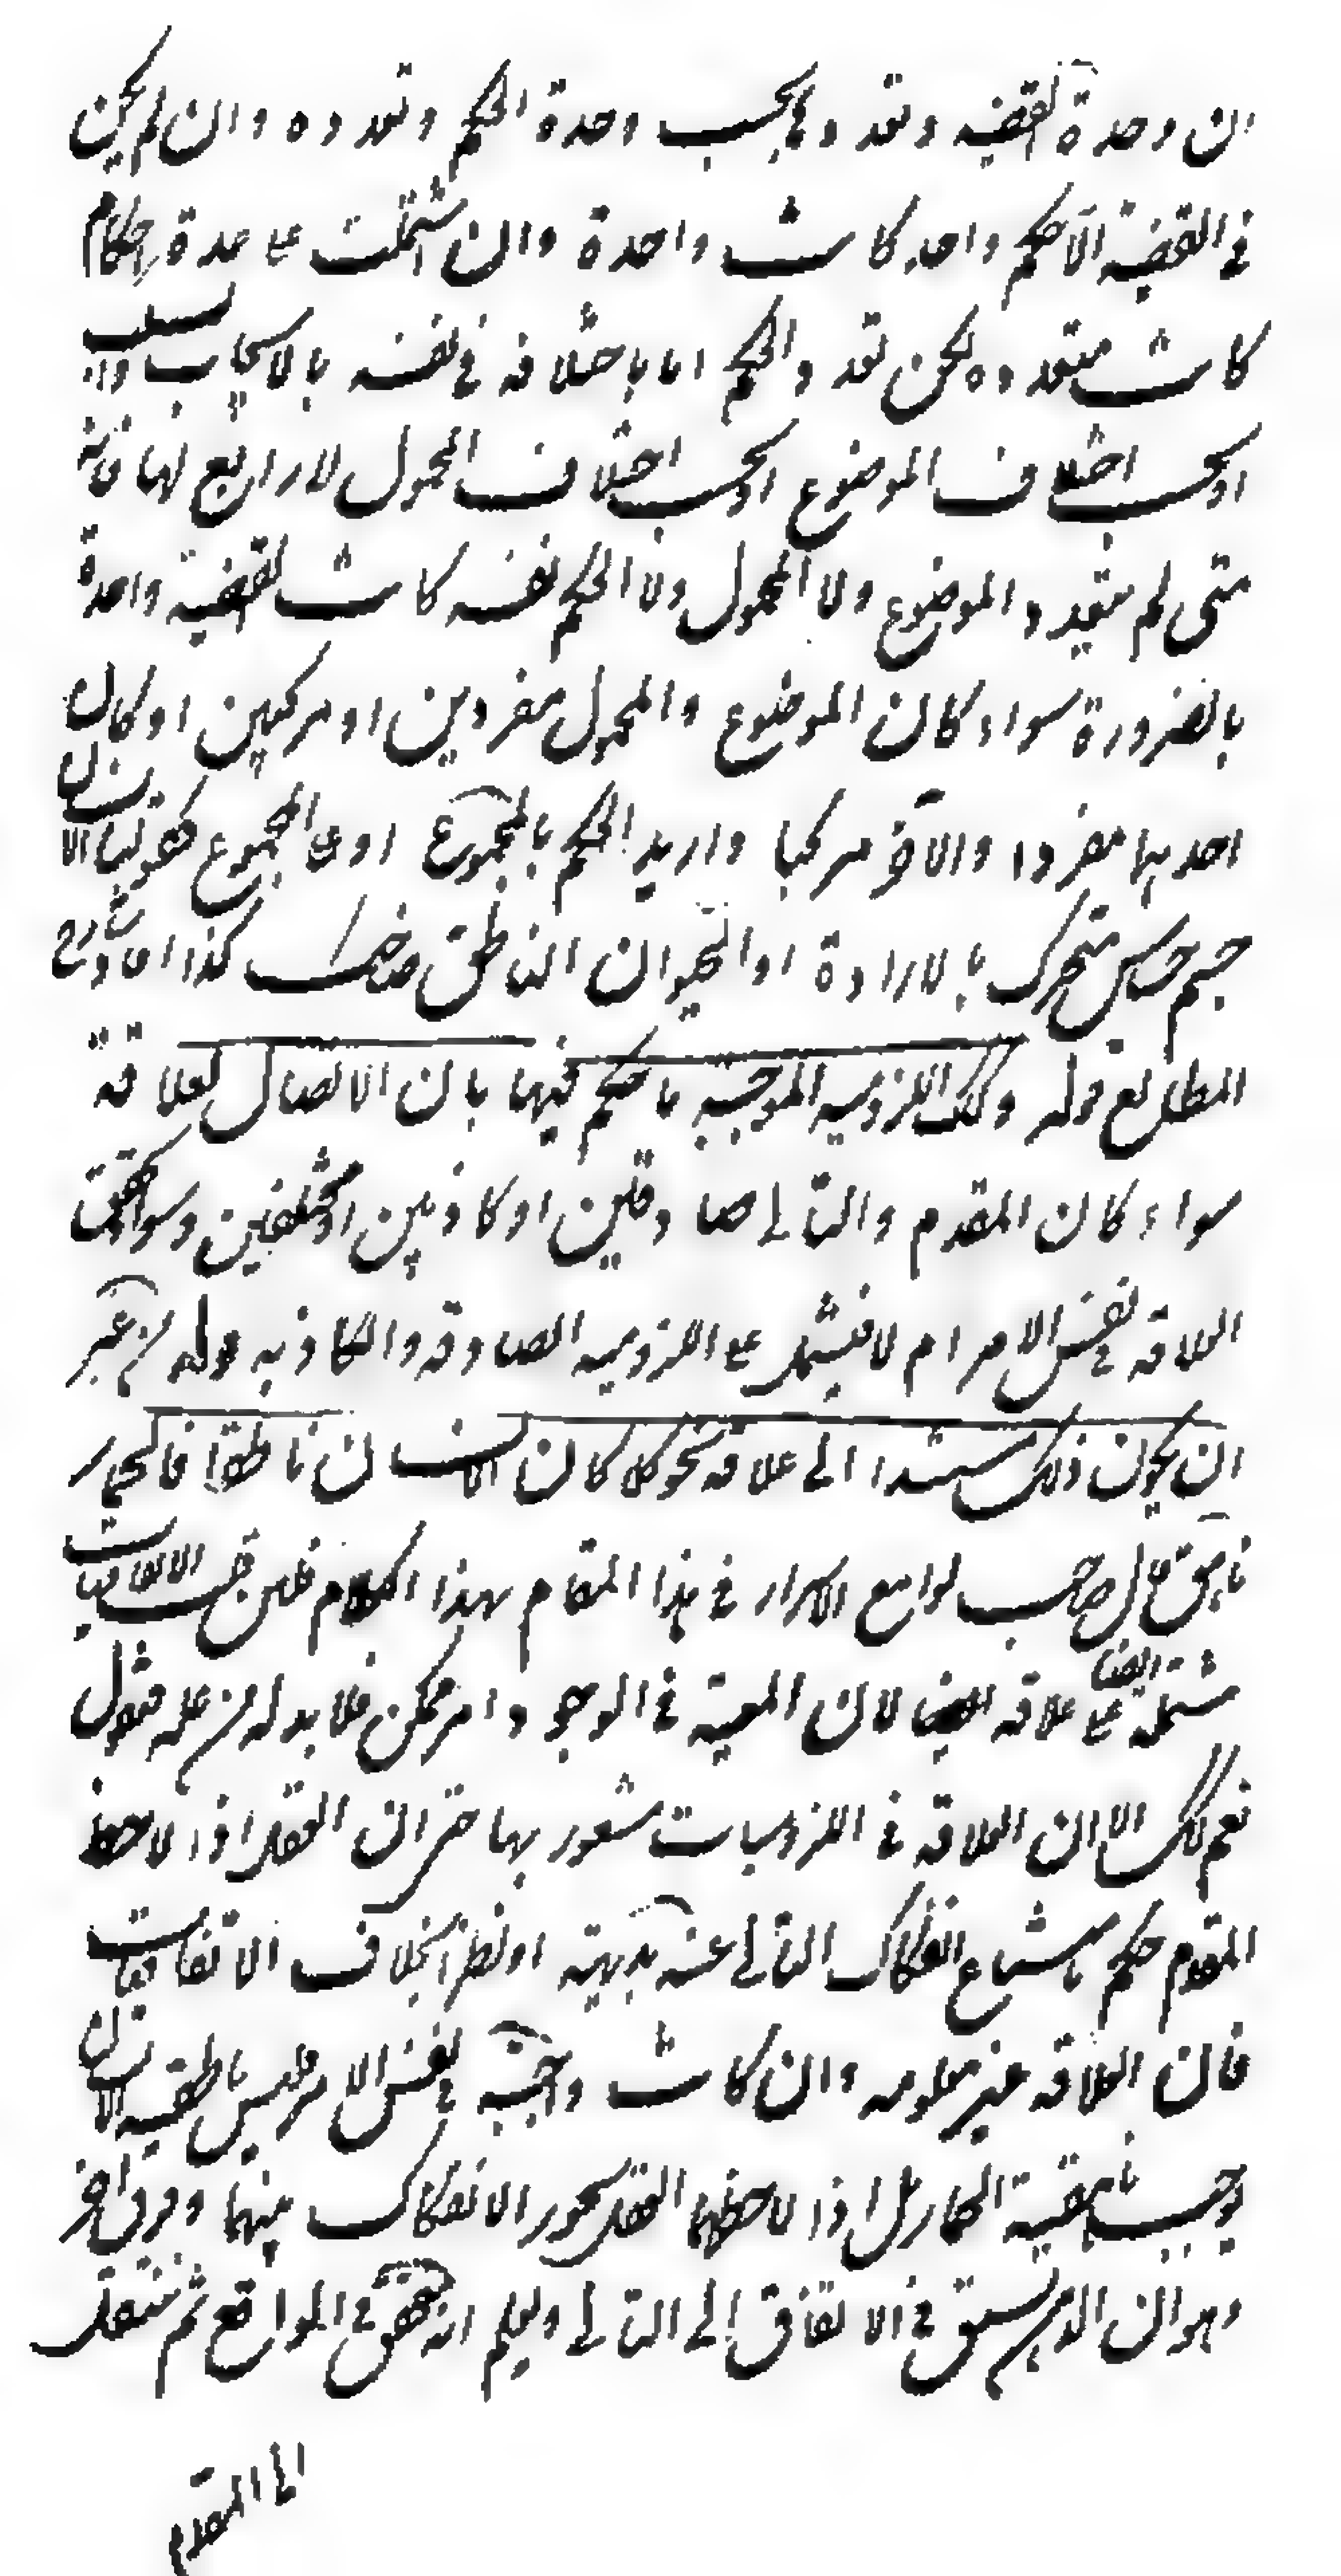 ان وحدة القضية وتعددها بحسب وحدة الحكم وتعدده وان لم يكن
في القضية الا حكم واحد كانت واحدة وان اشتملت على عدة احكام
كانت متعددة لكن تعدد الحكم اما باختلافه في نفسه بالايجاب والسلب
او بحسب اختلاف الموضوع او بحسب اختلاف المحمول لا رابع لها فانه
متى لم يتعدد الموضوع ولا المحمول ولا الحكم نفسه كانت القضية واحدة
بالضرورة سواء كان الموضوع والمحمول مفردين او مركبين او كان
احدهما مفردا والآخر مركبا واريد الحكم بالمجموع او على المجموع كقولنا الانسان
جسم حساس متحرك بالارادة او الحيوان الناطق ضاحك كذا افاد شارح
المطالع قوله وكذلك اللزومية الموجبة ما حكم فيها بان الاتصال لعلاقة
سواء كان المقدم والتالي صادقين او كاذبين او مختلفين وسواء تحققت
العلاقة في نفس الامر ام لا فيشمل على اللزومية الصادقة والكاذبة قوله من غير
ان يكون ذلك مستندا الى علاقة نحو كلما كان الانسان ناطقا فالحمار
ناهق قال صاحب لوامع الاسرار في هذا المقام بهذا الكلام فان قلت الاتفاقيات
مشتملة على علاقة ايضا لان المعية في الوجود امر ممكن فلا بد له من علة فنقول
نعم كذلك الا ان العلاقة في اللزوميات مشعور بها حتى ان العقل اذا لاحظ
المقدم حكم بامتناع انفكاك التالي عنه بديهة او نظرا بخلاف الاتفاقيات
فان العلاقة غير معلومة وان كانت واجبة في نفس الامر فليس ناطقية الانسان
توجب ناهقية الحمار بل اذا لاحظهما العقل يجوز الانفكاك بينهما وفرق آخر
وهو ان الذهن يسبق في الاتفاق الى التالي ويعلم انه تحقق في الواقع ثم ينتقل
الى المقدم